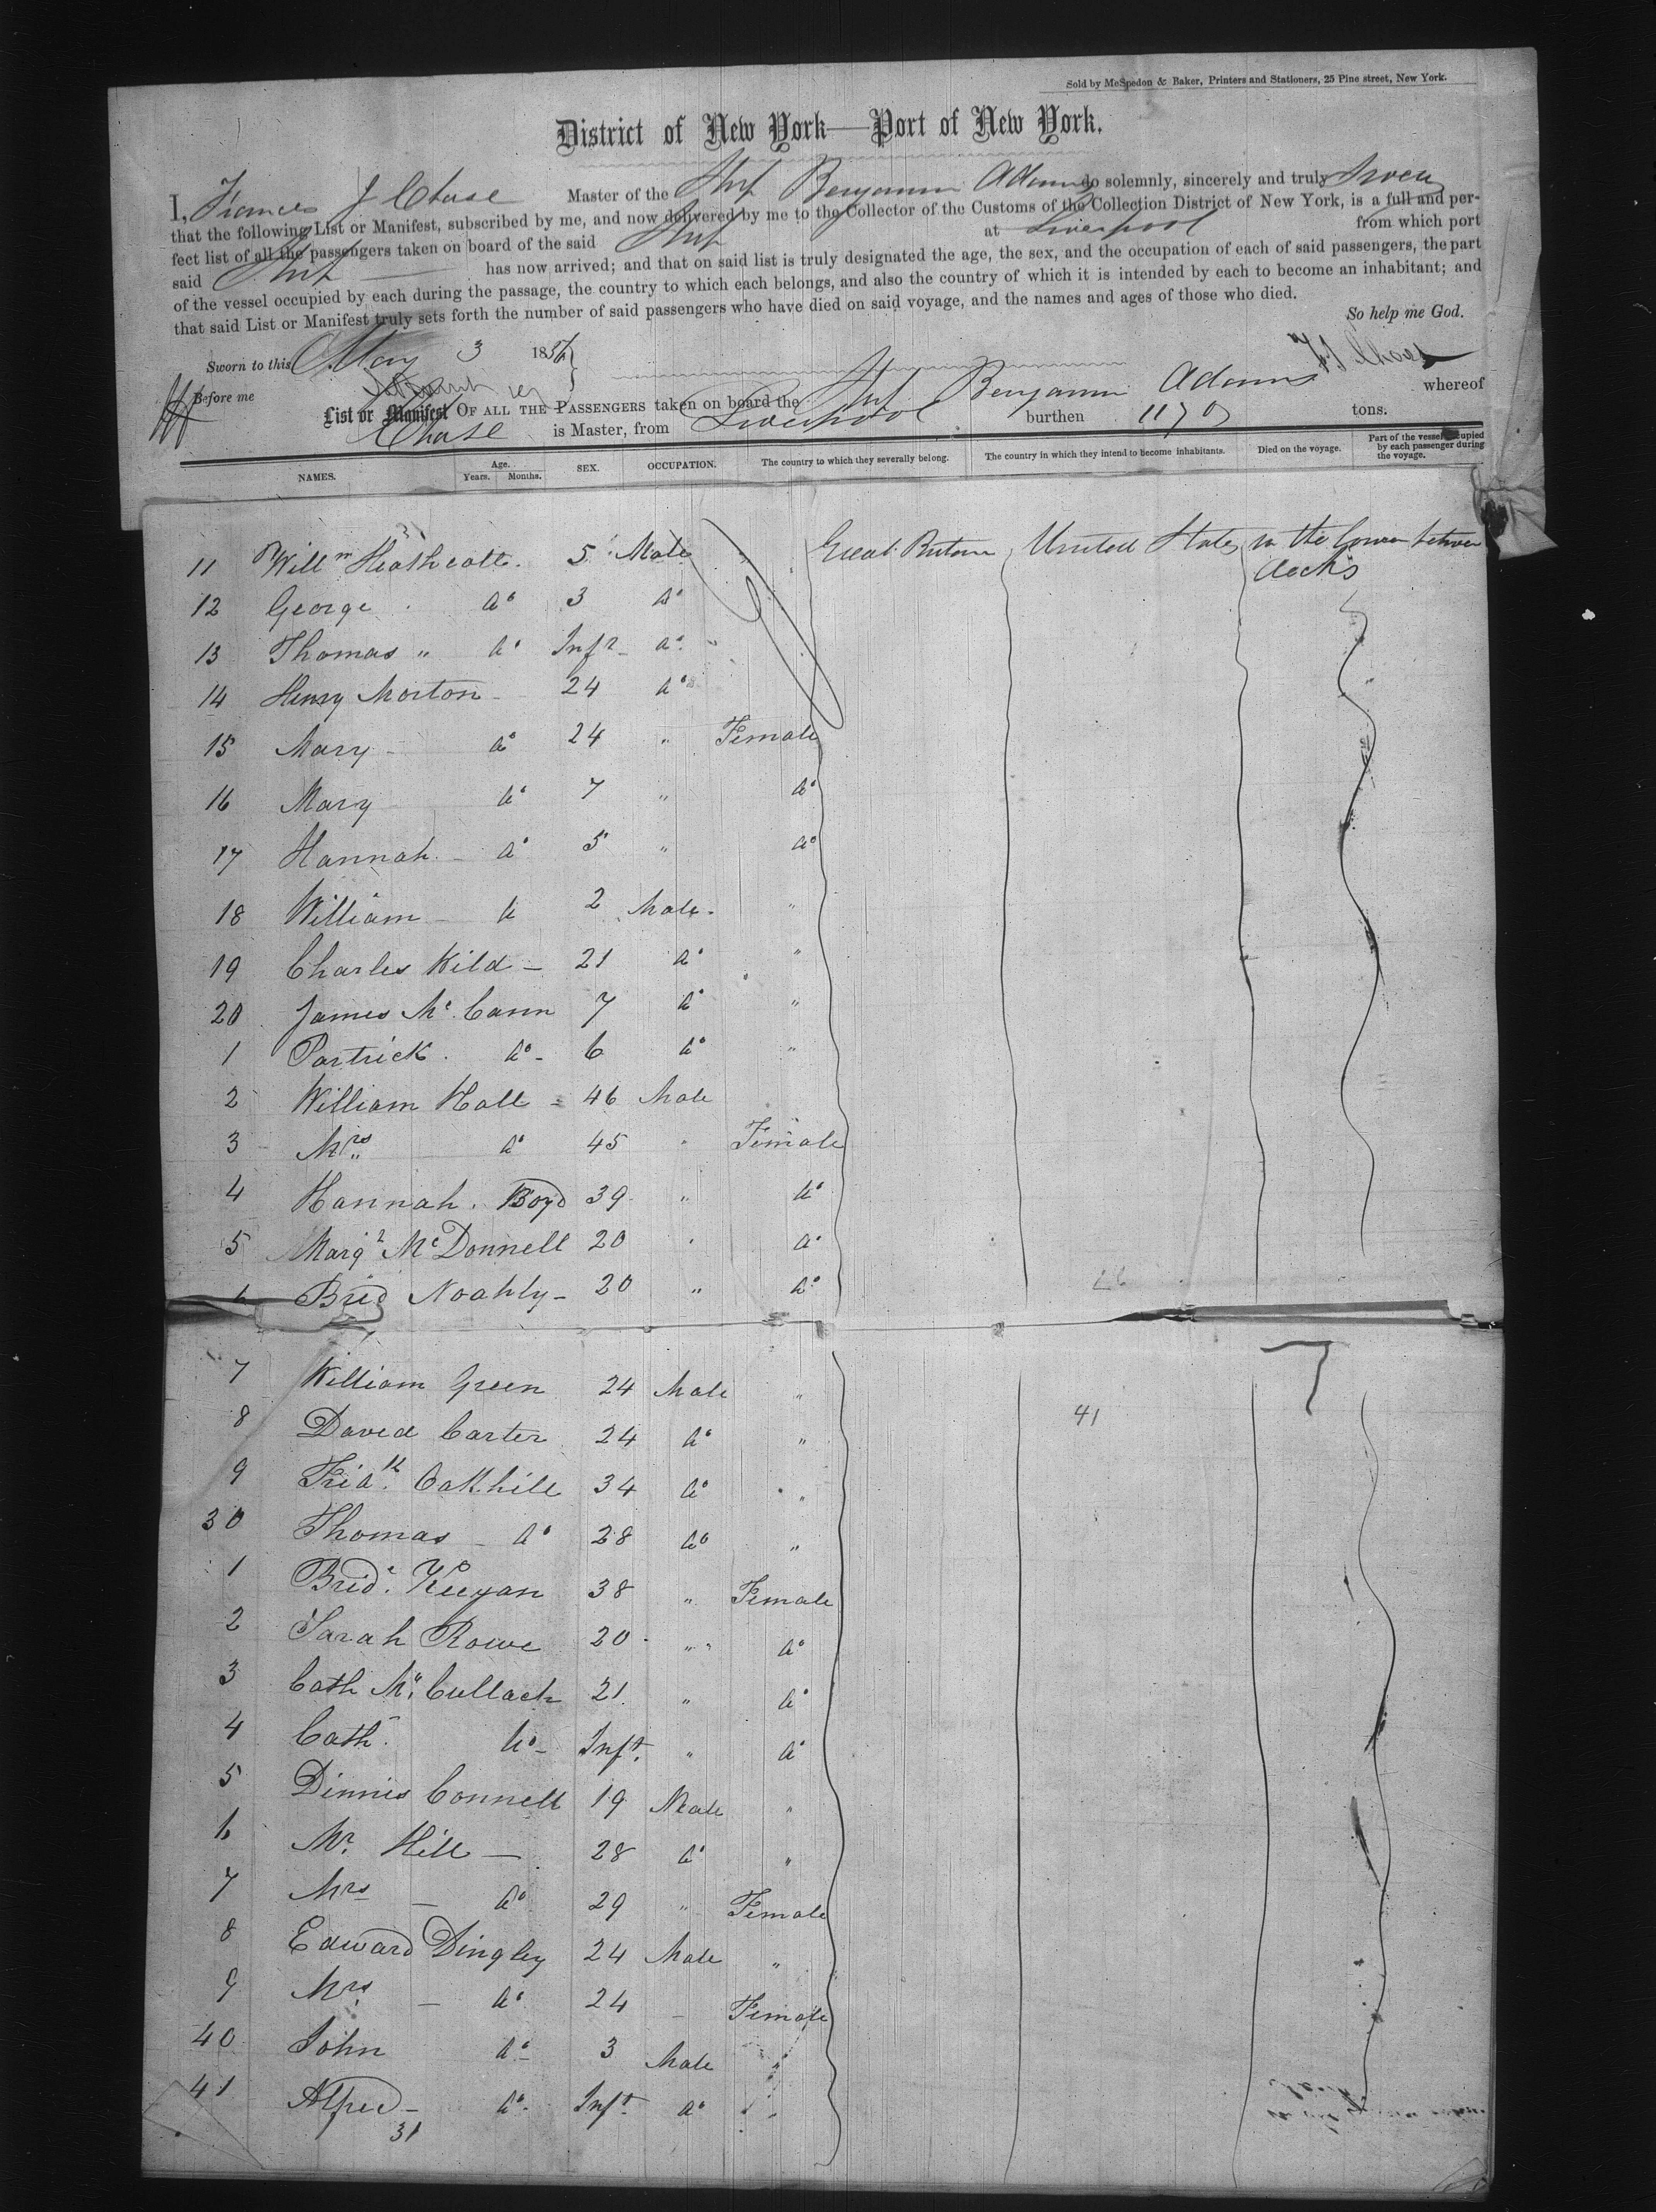 Sold by McSpedon & Baker, Printers and Stationers, 25 Pine street, New York.
District of New York—Port of New York.
I, Frances J Chase Master of the Ship Benjamin Adams do solemnly, sincerely and truly Swear
that the following List or Manifest, subscribed by me, and now delivered by me to the Collector of the Customs of the Collection District of New York, is a full and per-
fect list of all the passengers taken on board of the said Ship at Liverpool from which port
said Ship has now arrived; and that on said list is truly designated the age, the sex, and the occupation of each of said passengers, the part
of the vessel occupied by each during the passage, the country to which each belongs, and also the country of which it is intended by each to become an inhabitant; and
that said List or Manifest truly sets forth the number of said passengers who have died on said voyage, and the names and ages of those who died.
So help me God.
Sworn to this May 3 1856
F J Chase
Before me
List or Manifest OF ALL THE PASSENGERS taken on board the Ship Benjamin Adams whereof
Chase is Master, from Liverpool burthen 1170 tons.
NAMES. Age. Years. Months. SEX. OCCUPATION. The country to which they severally belong. The country in which they intend to become inhabitants. Died on the voyage. Part of the vessel occupied by each passenger during the voyage.
11 Willm Heathcott. 5 Male " Great Britain United States in the lower between
decks
12 George do 3 do
13 Thomas " do Inft do "
14 Henry Morton 24 do
15 Mary do 24 " Female
16 Mary do 7 " do
17 Hannah do 5 " do
18 William do 2 Male "
19 Charles Kild 21 do "
20 James Mc Cann 7 do "
1 Partrick do 6 do "
2 William Hall 46 Male
3 Mrs do 45 " Female
4 Hannah Boyd 39 " do
5 Margt McDonnell 20 " do
6 Brid Noahly 20 " do
26
7 William Green 24 Male "
7
8 David Carter 24 do "
41
9 Fridk Oakhill 34 do "
30 Thomas do 28 do "
1 Bridt Keegan 38 " Female
2 Sarah Rowe 20 " do
3 Cath McCullach 21 " do
4 Cath do Inft " do
5 Dinnis Connell 19 Male "
6 Mr Hill 28 do "
7 Mrs do 29 " Female
8 Edward Dingley 24 Male "
9 Mrs do 24 Female
40 John do 3 Male "
41 Alfred do Inft do "
31